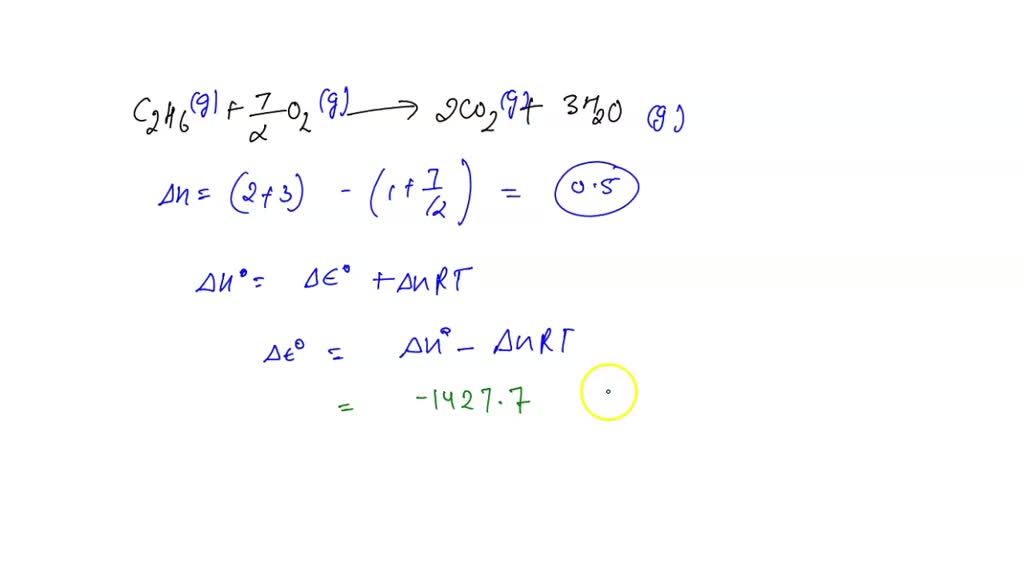 C2H6(g) + 7/2 O2(g) → 2CO2(g) + 3H2O (g)
Δn = (2+3) - (1+7/2) = 0.5
ΔH° = ΔE° + ΔnRT
ΔE° = ΔH° - ΔnRT
= -1427.7